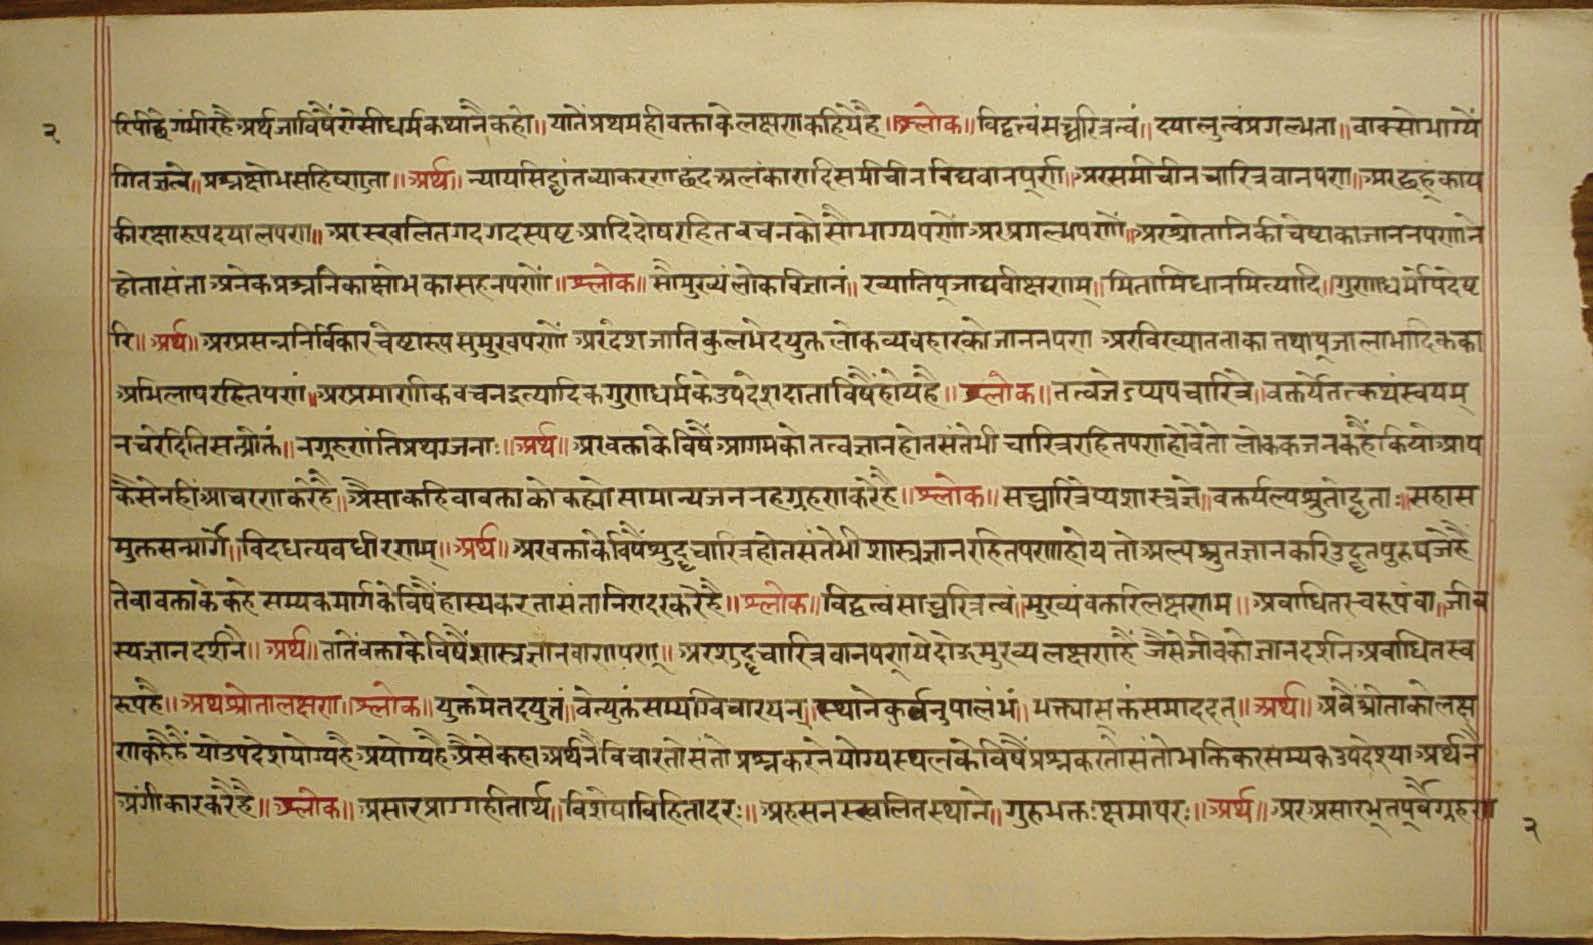 २
रिपीछै गंभीरहै अर्थ जाविषैं ऐसीधर्मकथानै कहो॥ यातेंप्रथमहीवक्ताकेलक्षणकहियेहै॥श्लोक॥ विद्वत्त्वंसच्चरित्रत्वं॥ दयालुत्वंप्रगल्भता॥ वाक्सौभाग्यें
गितज्ञत्वे॥ प्रश्नक्षोभसहिष्णुता॥ अर्थ॥ न्यायसिद्धांतव्याकरणछंदअलंकारादिसमीचीनविद्यवानपर्णा॥ अरसमीचीनचारित्रवानपणा॥ अरछहूंकाय
कीरक्षारूपदयालपणा॥ अरस्खलितगदगदस्पष्टआदिदोषरहितवचनकोसौभाग्यपणों अरप्रगल्भपणों॥ अरश्रोतानिकीचेष्टाकाजाननपणाने
होतासंता अनेकप्रश्ननिकाक्षोभकासहनपणों॥ श्लोक॥ सौमुख्यंलोकविज्ञानं॥ ख्यातिपूजाद्यवीक्षणम्॥ मिताभिधानमित्यादि॥ गुणाधर्मोपदेष्ट
रि॥ अर्थ॥ अरप्रसन्ननिर्विकारचेष्टारूपसुमुखपणों अरदेशजातिकुलभेदयुक्तलोकव्यवहारकोजाननपणा अरविख्यातताका तथापूजालाभादिकका
अभिलाषरहितपणां॥ अरप्रमाणीकवचनइत्यादिकगुणधर्मकेउपदेशदाताविषैंहोयहै॥ श्लोक॥ तत्वज्ञेऽप्यपचारित्रे॥ वक्तर्येतत्कथंस्वयम्
नचरेदितिसत्प्रोक्तं॥ नगृह्णंतिप्रथग्जनाः॥ अर्थ॥ अरवक्ताकेविषैं आगमकोतत्वज्ञानहोतसंतेभी चारित्ररहितपणाहोवेतो लोककजनकहैंकियोआप
कैसेनहीआचरणकरेहै॥ अैसाकहिवावक्ताकोकह्योसामान्यजननहग्रहणकरेहै॥ श्लोक॥ सच्चारित्रेप्यशास्त्रज्ञे॥ वक्तर्यल्पश्रुतोद्धताः॥ सहास
मुक्तसन्मार्गे॥ विदधत्यवधीरणम्॥ अर्थ॥ अरवक्ताकेविषैंशुद्धचारित्रहोतसंतेभीशास्त्रज्ञानरहितपणाहोय तो अल्पश्रुतज्ञानकरिउद्धतपुरुषजेहैं
तेवावक्ताकेकहेसम्यकमार्गकेविषैंहास्यकरतासंतानिरादरकरेहै॥ श्लोक॥ विद्वत्त्वंसच्चरित्रत्वं॥ मुख्यंवक्तरिलक्षणम॥ अबाधितस्वरूपंवा॥ जीव
स्यज्ञानदर्शने॥ अर्थ॥ तातेंवक्ताकेविषैंशास्त्रज्ञानवाणपणा॥ अरशुद्धचारित्रवानपणायेदोऊमुख्यलक्षणहैं जैसेजीवकोज्ञानदर्शनअबाधितस्व
रूपहै॥ अथश्रोतालक्षण॥ श्लोक॥ युक्तमेतदयुक्तं॥ वेत्युक्तंसम्यग्विचारयन्॥ स्थानेकुर्वन्नुपालंभं॥ भक्त्यासूक्तंसमाददत्॥ अर्थ॥ अबैंश्रोताकोलक्ष
णकहैहैं योउपदेशयोग्यहै अयोग्यहै अैसेकहाअर्थनैविचारतोसंतो प्रश्नकरनेयोग्यस्थलकेविषैंप्रश्नकरतौसंतोभक्तिकरसम्यकउपदेश्याअर्थनै
अंगीकारकरैहै॥ श्लोक॥ असारप्राग्गृहीतार्थ॥ विशेषाविहितादरः॥ अहसनस्खलितस्थाने॥ गुरुभक्तःक्षमापरः॥ अर्थ॥ अर असारभूतपूर्वैग्रहण
२